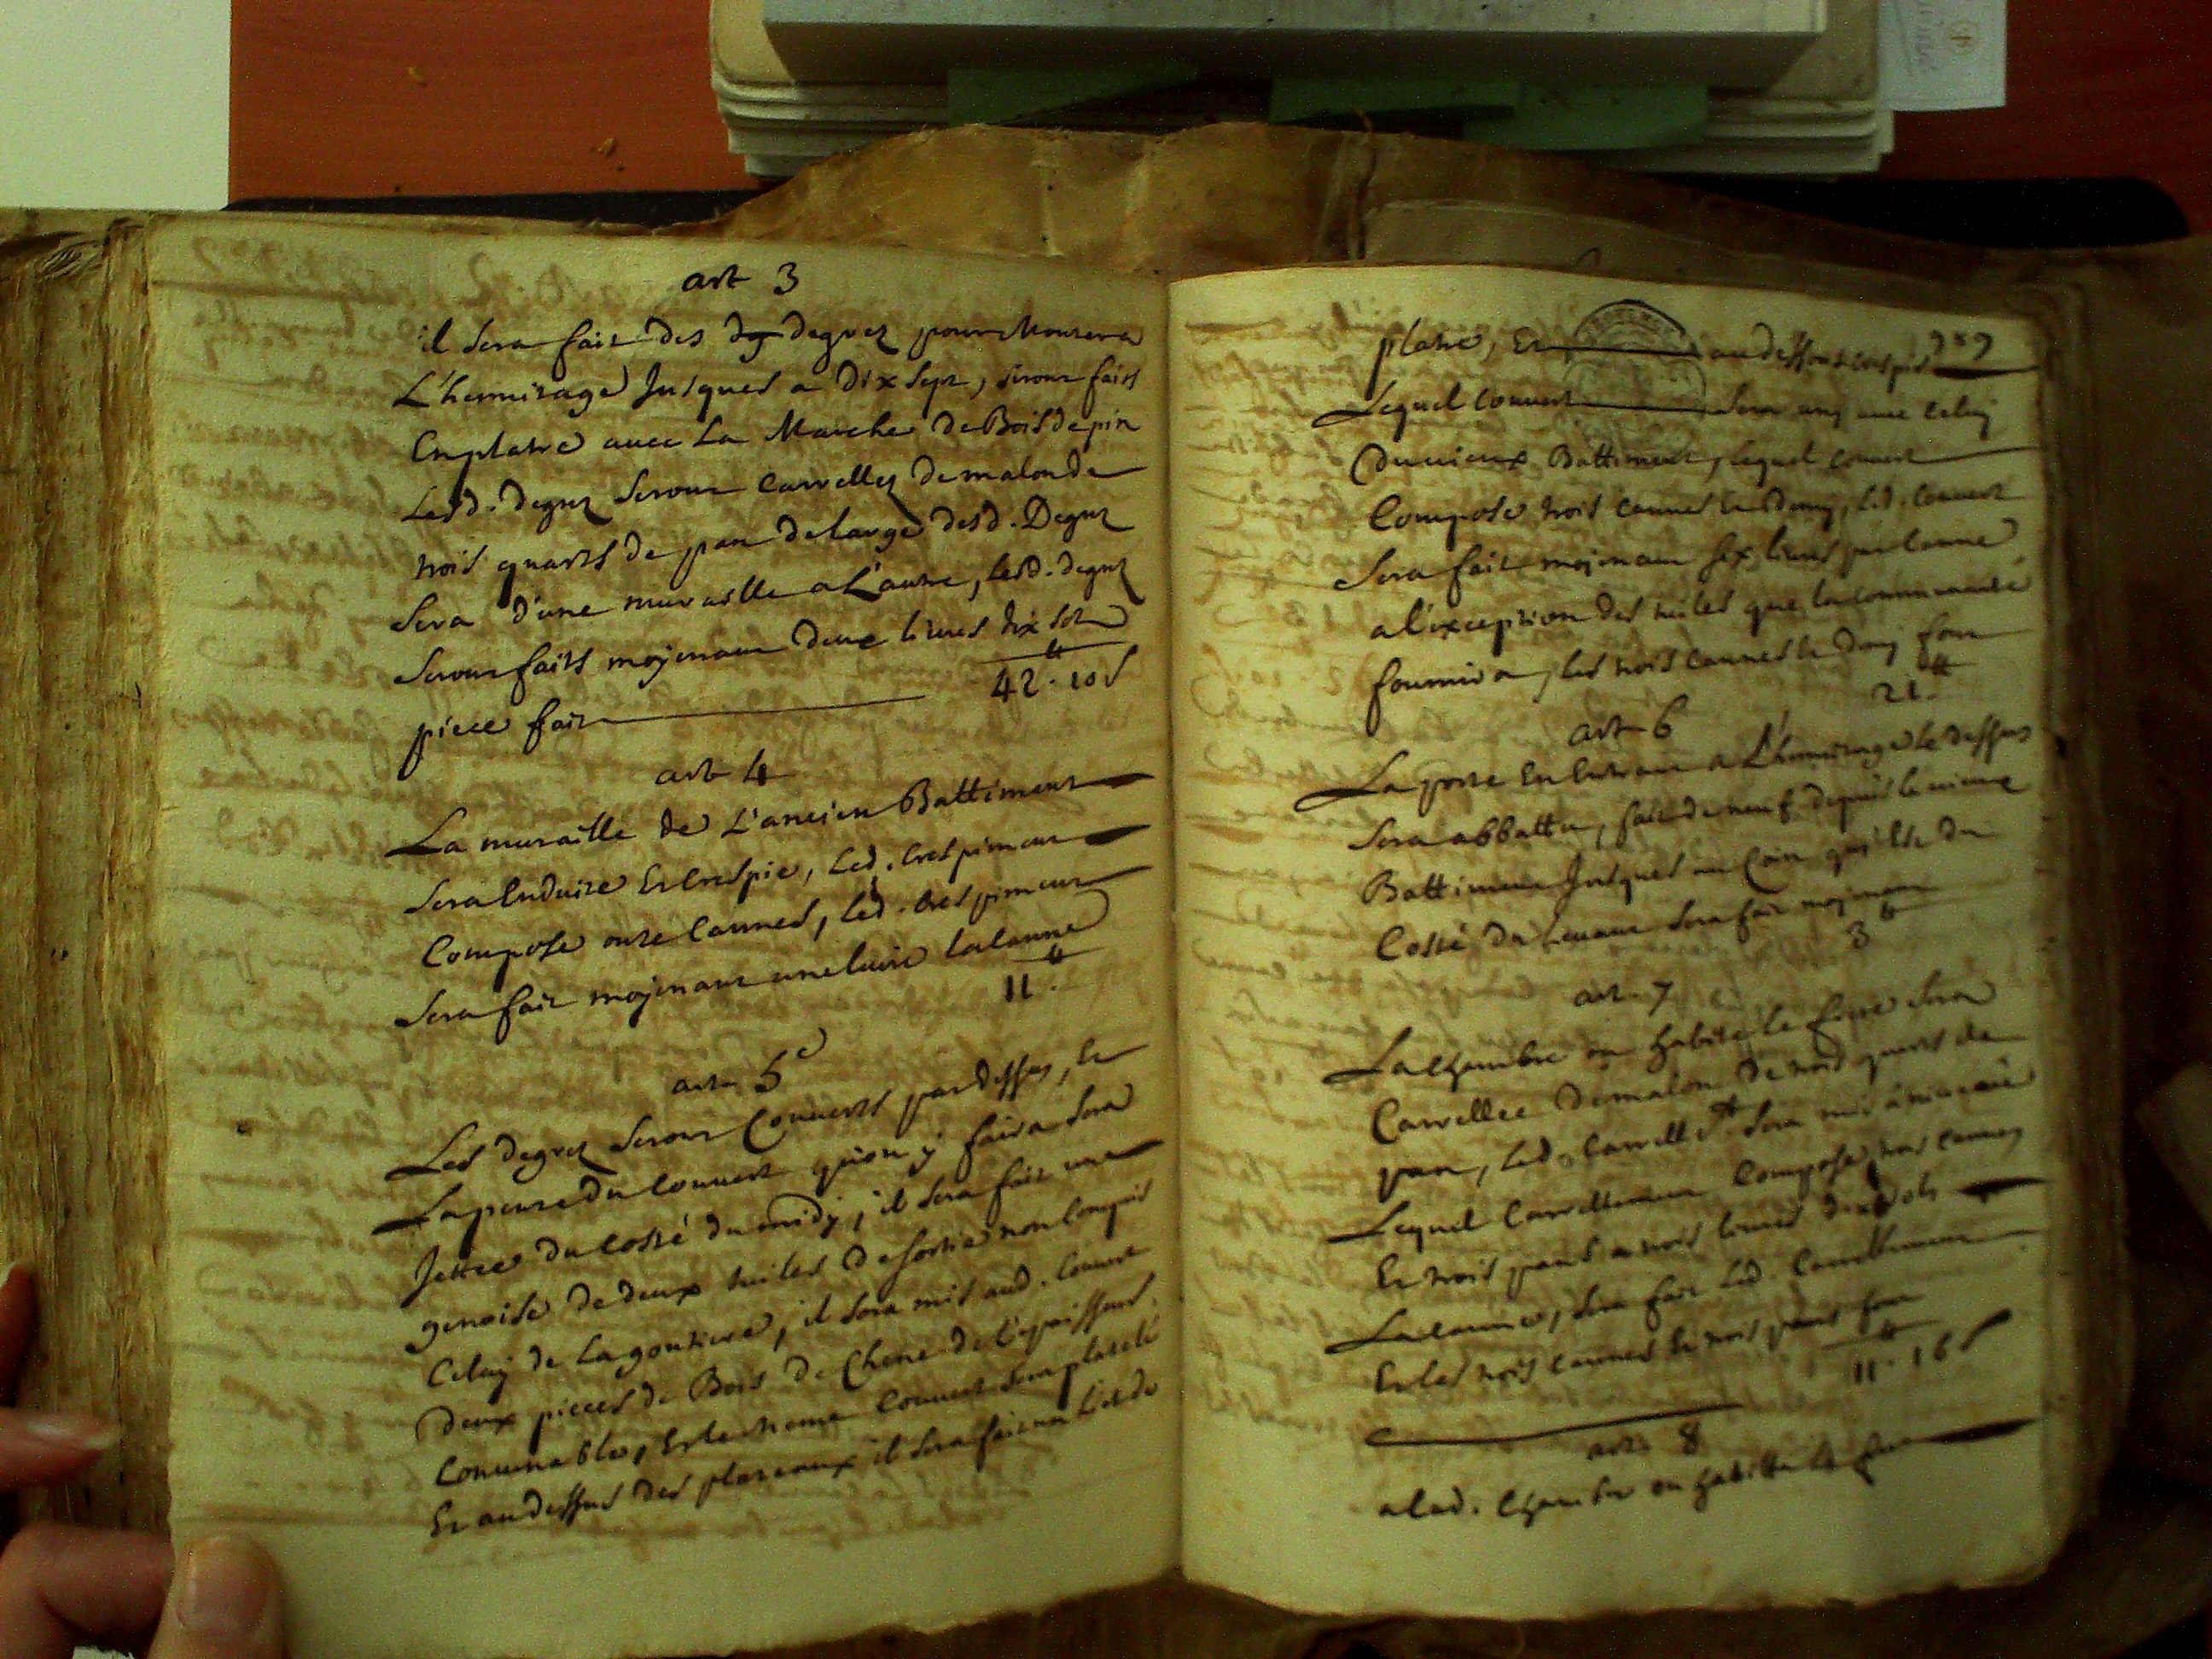 art 3
il sera fait des dg degrez pour Monter a
L'hermitage Jusques a dix sept, seront faits
En platre avec La Marche De Bois de pin
Lesd. degrez Seront Carrellez de malon de
trois quarts de pan de large desd. Degrez
Sera d'une muraille a L'autre, lesd. degrez
Seront faits mojenant deux livres dix sols
piece fait 42 ₶ · 10 s
art 4
La muraille de L'ancien Battiment
Sera Enduite Et Crespie, Led. Crespiment
Compose onze Cannes, Led. Crespiment
Sera fait mojenant une livre la canne
11 ₶ ·
art 5e
Les degrez Seront Couverts par dessus, Et
La pente du Couvert qu'on y faira Sera
Jettée du Costé du midy, il Sera fait une
genoise de deux tuiles de sortie non Compris
Celuy de La goutiere, il Sera mis aud. Couvert
Deux pieces de Bois de Chene de L'epaisseur
Convenable, Et le meme Couvert Sera platelé
Et au dessus des plateaux il Sera fait un Lit de
platre, Et au dessous crespis
Lequel Couvert Sera uny avec Celuy
Du vieux Battiment, Lequel Couvert
Compose trois Cannes Et Demy, Led. Couvert
Sera fait mojenant six livres par Canne
a l'exception des tuiles que la Communauté
fournira, les trois Cannes Et Demy font
21 ₶ ·
art 6
La porte En Entrant a L'hermitage Le dessus
Sera abbattu, fait de neuf depuis le
Battiment Jusques au Coin qui Est du
Costé du Levant Sera fait mojenant
3 ₶
art 7
La Chambre ou habite le frere Sera
Carrellée De malon De trois quarts de
pan, Led. Carrellet Sera mis a niveau
Lequel Carrellement Compose trois Cannes
Et trois pans a trois livres dix sols
La canne, Sera fait Led. Carrellement
Et les trois Cannes Et trois pans font
11 ₶ · 16 s
art 8
a lad. Chambre ou habitte le frere